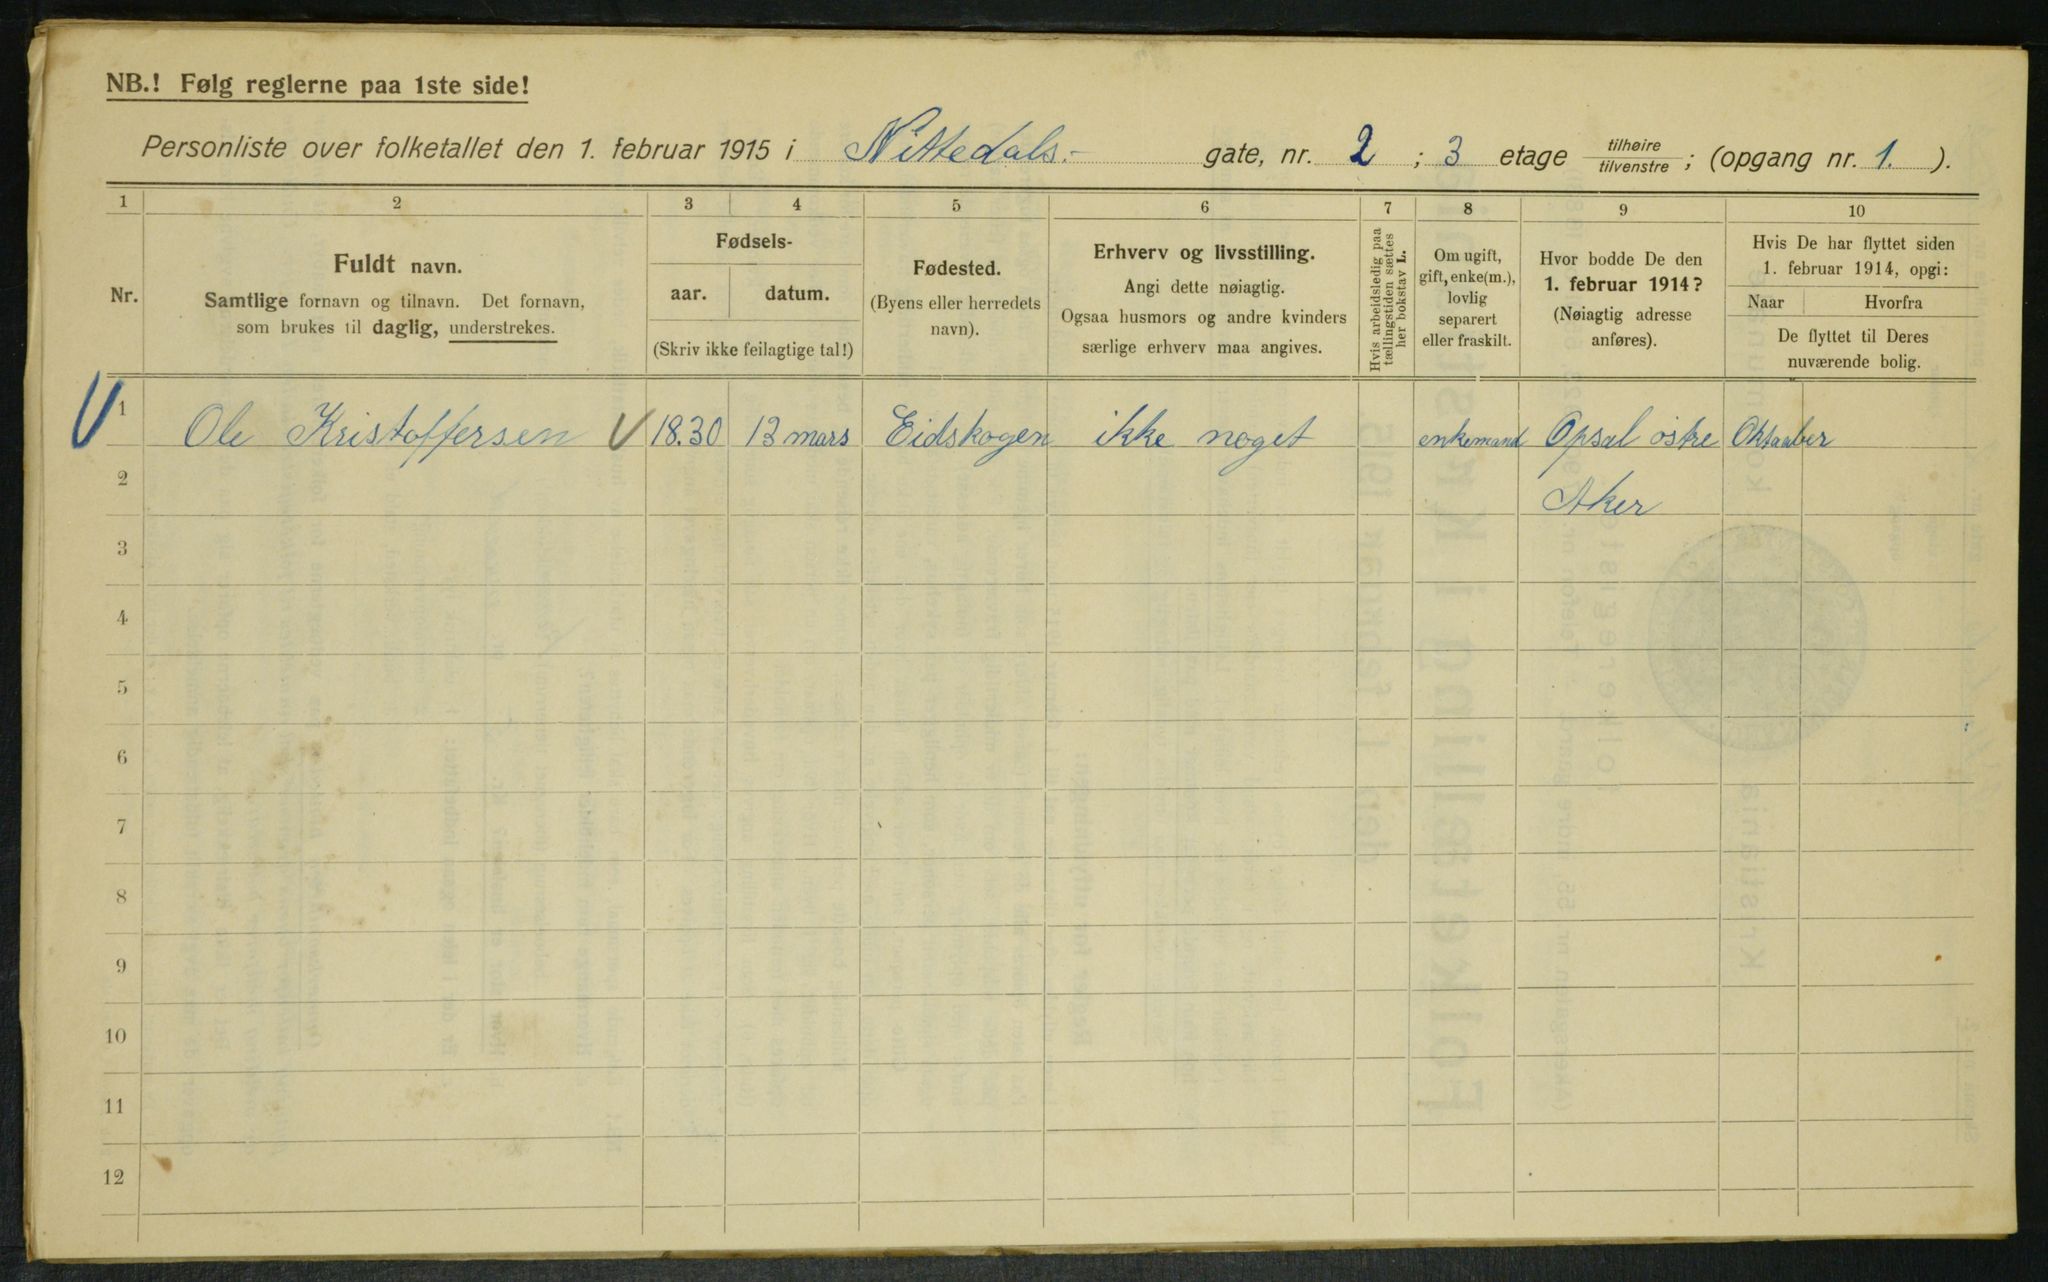 NB.! Følg reglerne paa 1ste side!
Personliste over folketallet den 1. februar 1915 i Nittedals.- gate, nr. 2 ; 3 etage tilhøire/tilvenstre ; (opgang nr. 1. ).
1 2 3 4 5 6 7 8 9 10
Nr.
Fuldt navn.
Samtlige fornavn og tilnavn. Det fornavn,
som brukes til daglig, understrekes.
Fødsels-
aar. datum.
(Skriv ikke feilagtige tal!)
Fødested.
(Byens eller herredets
navn).
Erhverv og livsstilling.
Angi dette nøiagtig.
Ogsaa husmors og andre kvinders
særlige erhverv maa angives.
Hvis arbeidsledig paa
tællingstiden sættes
her bokstav L.
Om ugift,
gift, enke(m.),
lovlig
separert
eller fraskilt.
Hvor bodde De den
1. februar 1914?
(Nøiagtig adresse
anføres).
Hvis De har flyttet siden
1. februar 1914, opgi:
Naar Hvorfra
De flyttet til Deres
nuværende bolig.
1 Ole Kristoffersen 18.30 13 mars Eidskogen ikke noget enkemand Opsal østre Oktaaber
2 Aker
3
4
5
6
7
8
9
10
11
12